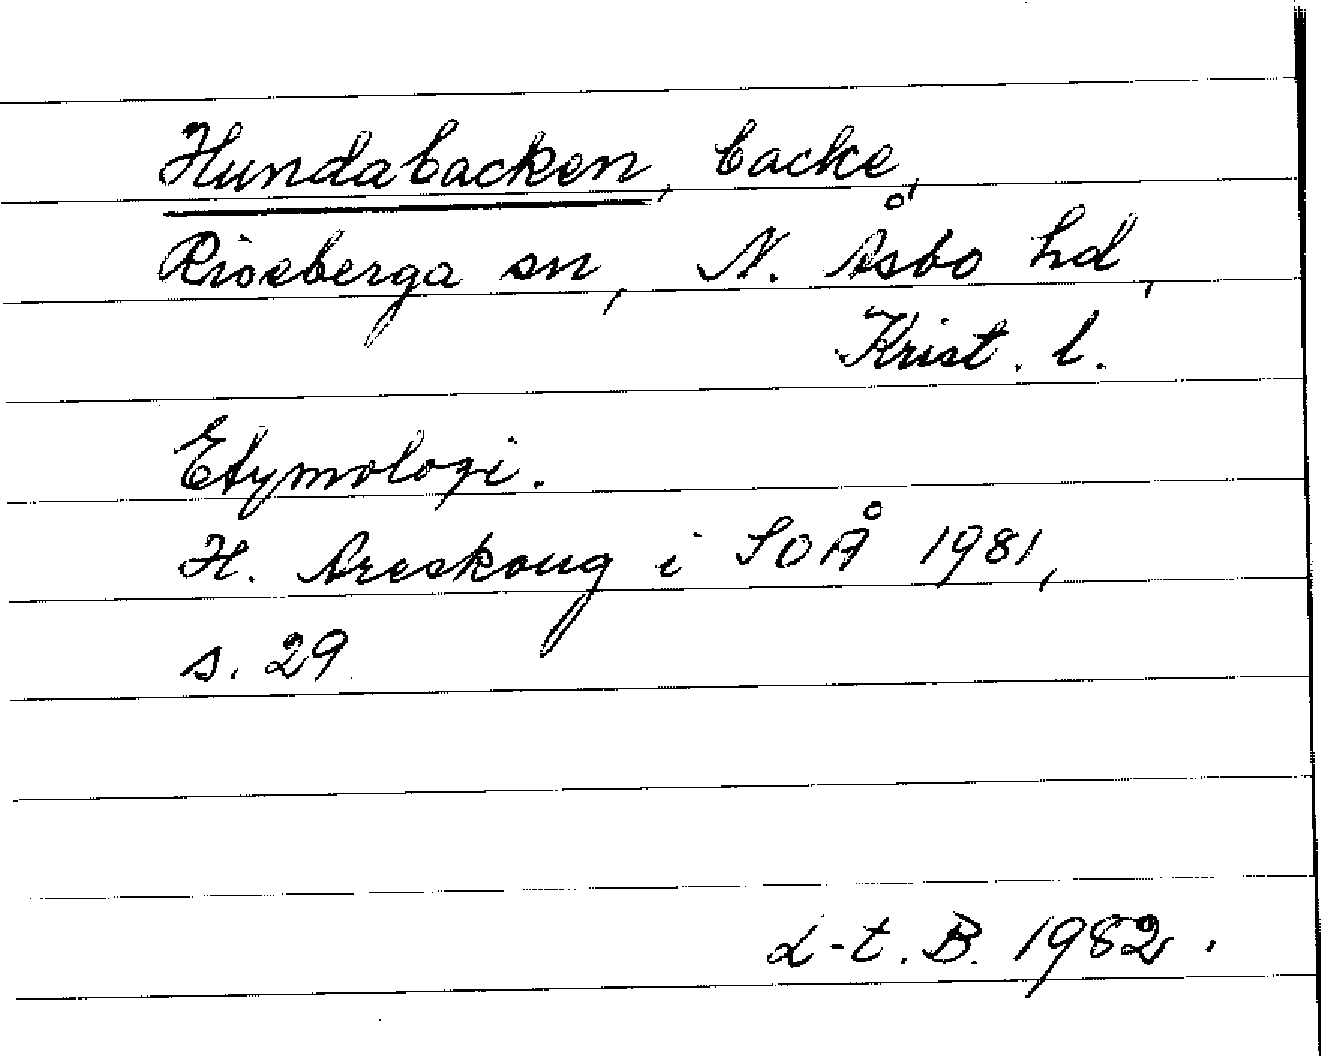 Hundabacken, backe,
Riseberga sn, N. Åsbo hd,
Krist. l.
Etymologi.
H. Areskoug i SOÅ 1981,
s. 29
L-t. B. 1982.